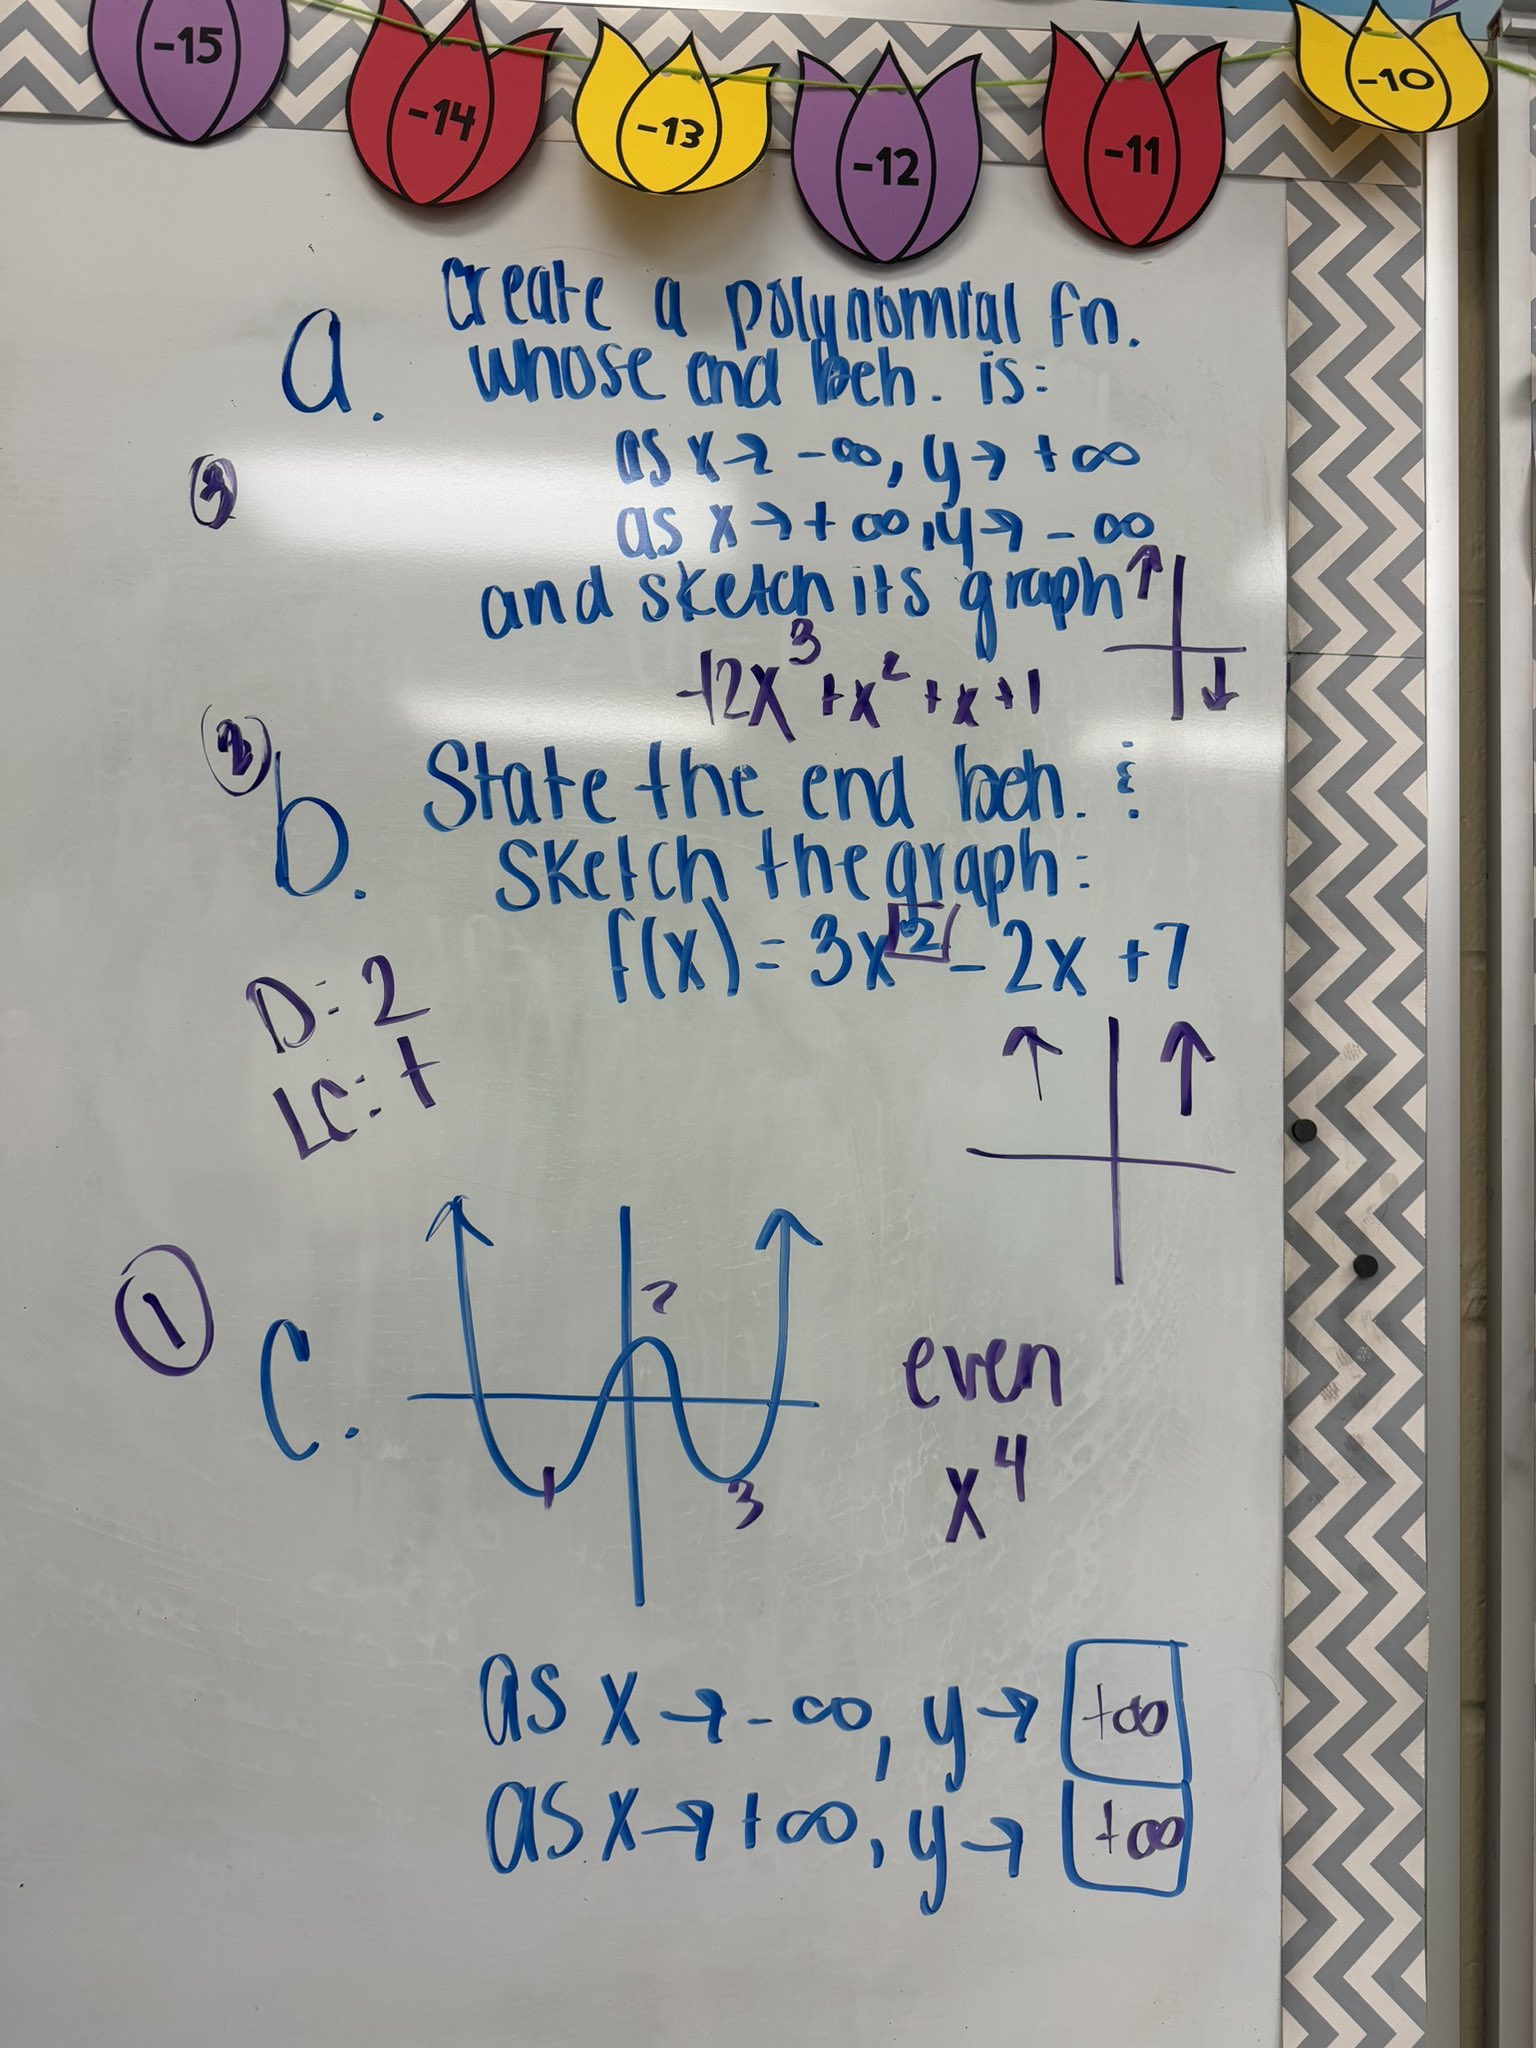 -15
-14
-13
-12
-11
-10
a.
create a polynomial fn.
whose end beh. is:
as x → -∞, y → +∞
as x → +∞, y → -∞
and sketch its graph
3
-12x³ + x² + x + 1
2
b.
State the end beh. &
sketch the graph:
f(x) = 3x² - 2x + 7
D: 2
LC: +
1
c.
2
1
3
even
x⁴
as x → -∞, y → +∞
as x → +∞, y → +∞